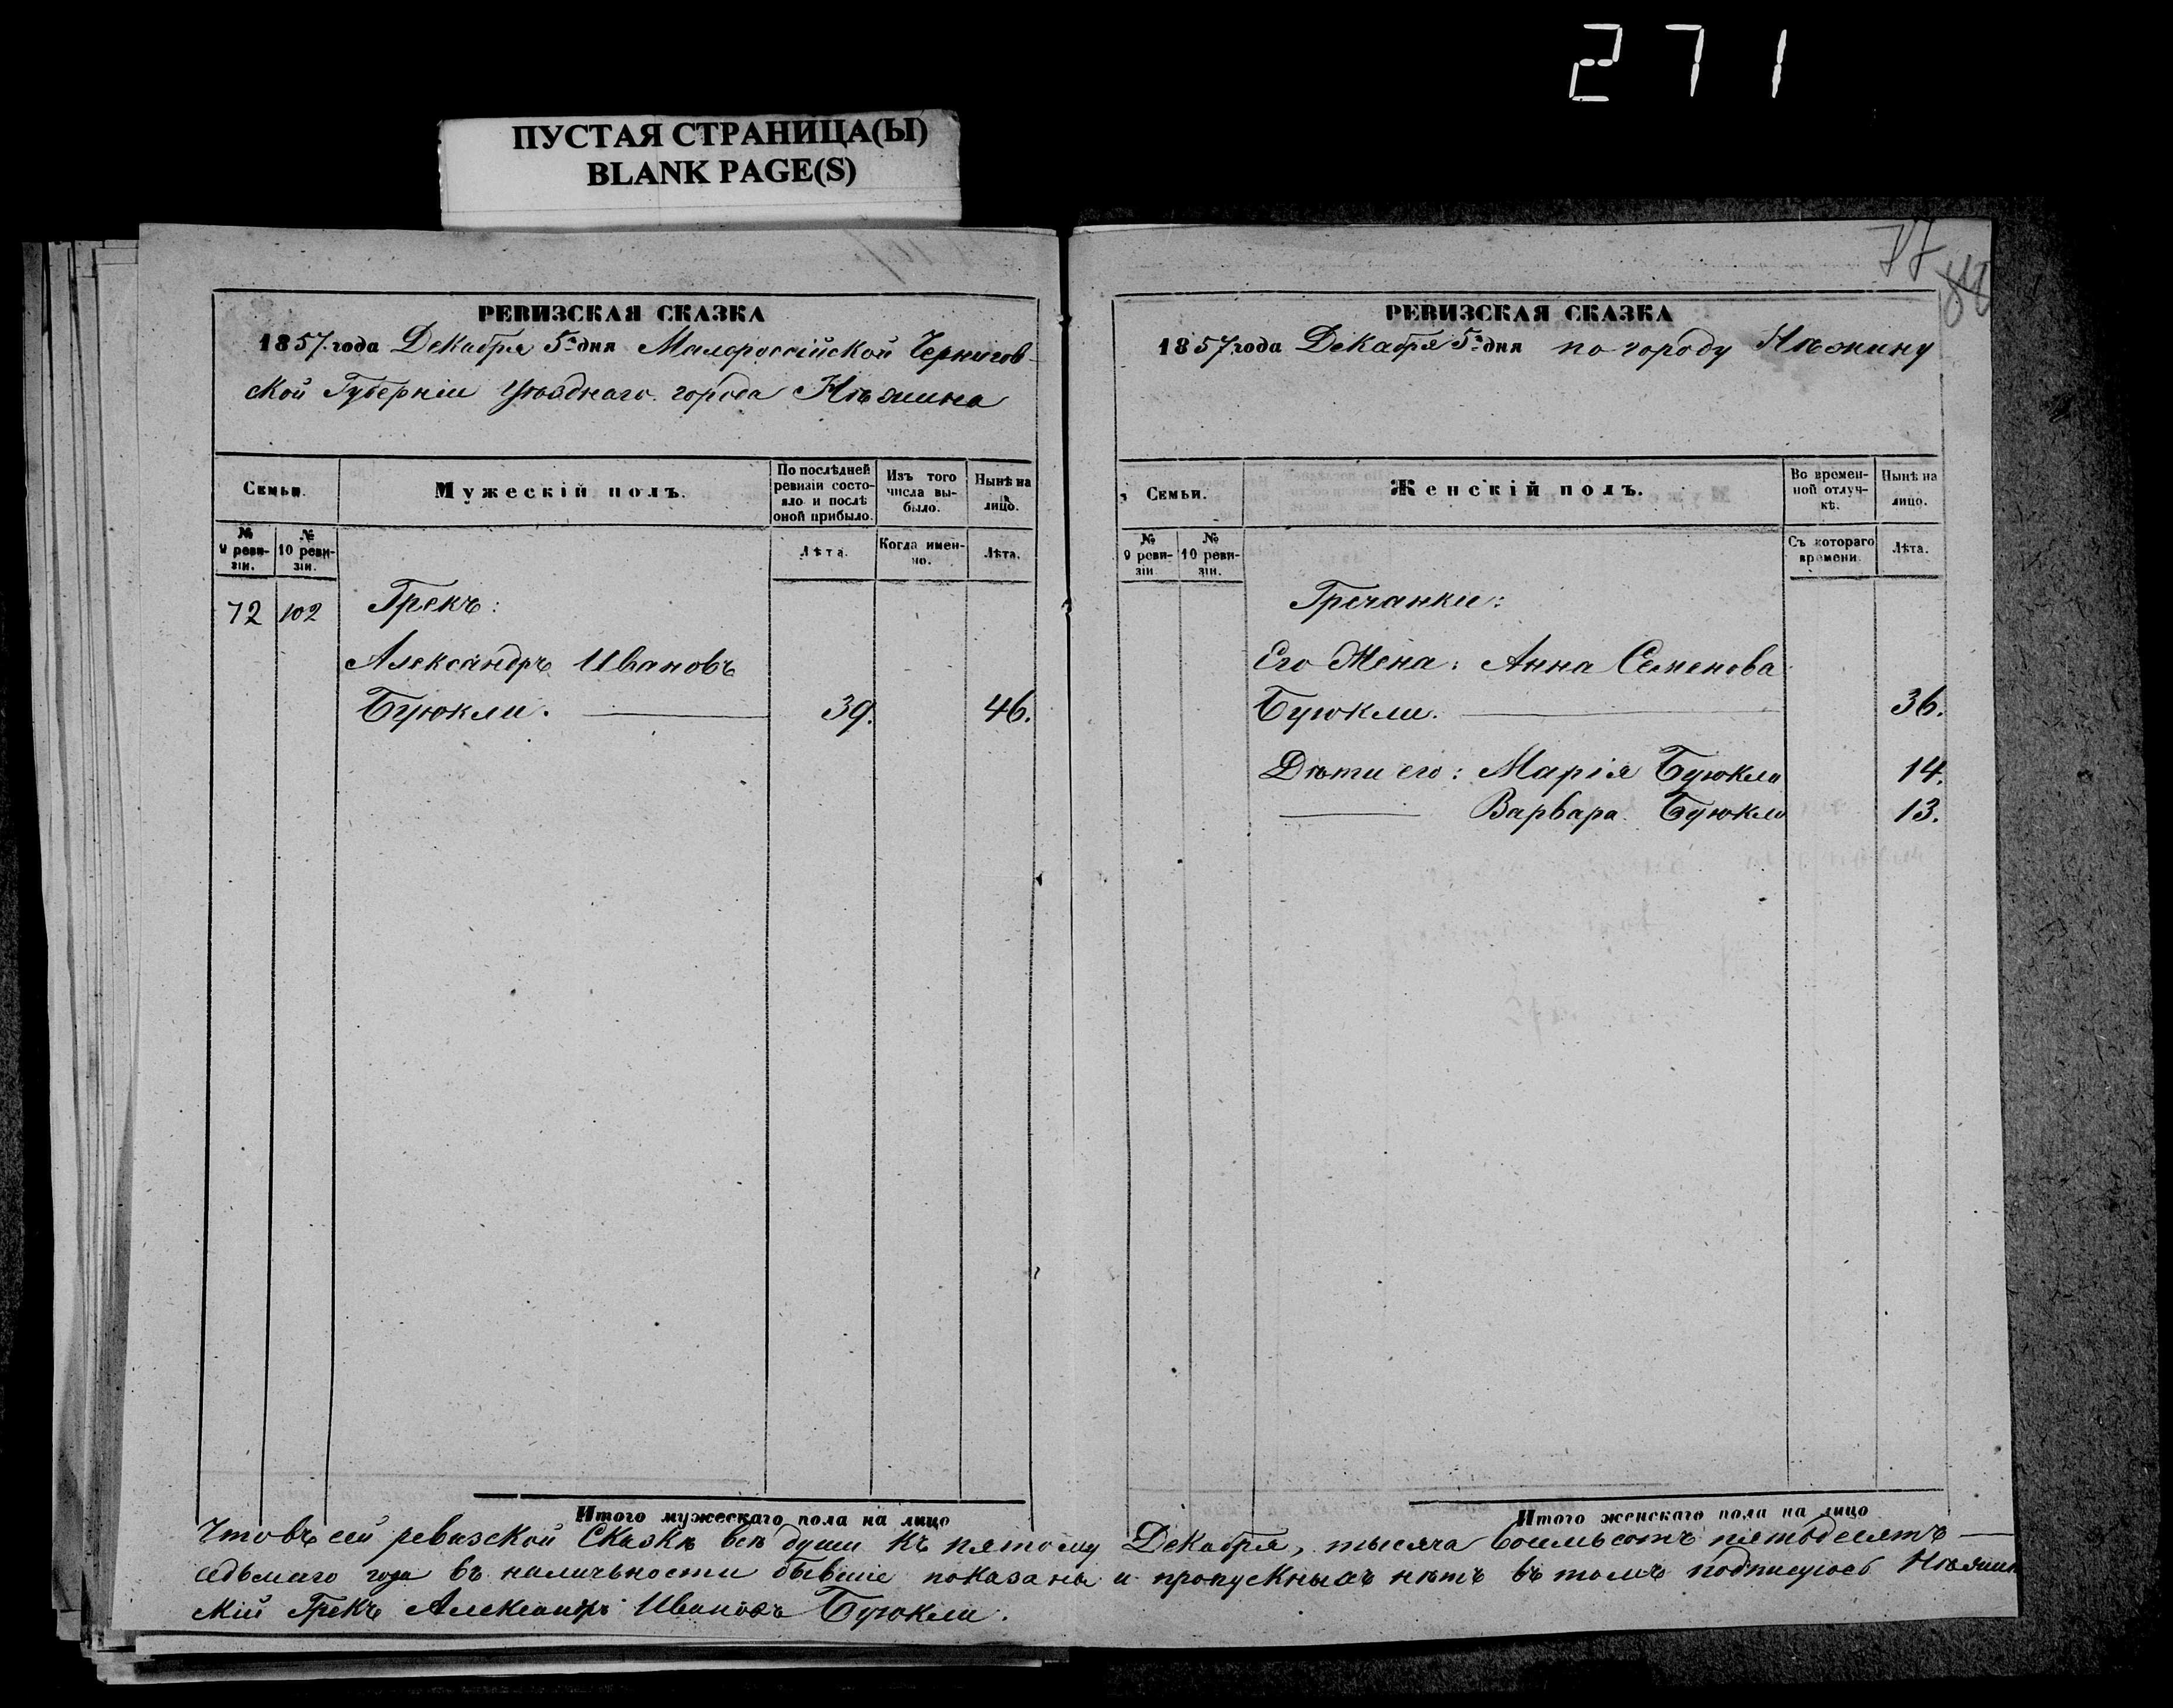 271
ПУСТАЯ СТРАНИЦА(Ы)
BLANK PAGE(S)
РЕВИЗСКАЯ СКАЗКА
1857 года Декабря 5го дня Малороссійской Чернигов-
ской Губерніи Уѣзднаго города Нѣжина
Семьи.
Мужескій полъ.
По послѣдней ревизіи состояло и послѣ оной прибыло.
Изъ того числа выбыло.
Нынѣ на лицо.
№ 9 ревизіи.
№ 10 ревизіи.
Лѣта.
Когда именно.
Лѣта.
72 102 Грекъ:
Александръ Ивановъ
Буюкли. 39. 46.
Итого мужескаго пола на лицо
77
РЕВИЗСКАЯ СКАЗКА
1857 года Декабря 5го дня по городу Нѣжину
Семьи.
Женскій полъ.
Во временной отлучкѣ.
Нынѣ на лицо.
№ 9 ревизіи
№ 10 ревизіи.
Съ котораго времени.
Лѣта.
Гречанки:
Его Жена: Анна Семенова
Буюкли. 36.
Дѣти его: Марія Буюкли 14.
Варвара Буюкли 13.
Итого женскаго пола на лицо
Что въ сей ревизской Сказкѣ всѣ души къ пятому Декабря, тысяча восемьсотъ пятьдесятъ
седьмаго года въ наличьности бывшіе показаны и пропускныхъ нѣтъ въ томъ подписуюсь Нѣжин
скій Грекъ Александръ Ивановъ Буюкли.